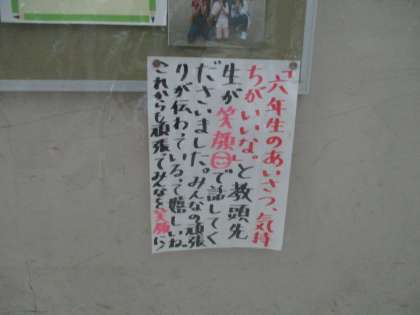 「六年生のあいさつ、気持
ちがいいな。」と教頭先
生が笑顔😊で話してく
ださいました。みんなの頑張
りが伝わっているって嬉しいね。
これからも頑張ってみんなを笑顔に